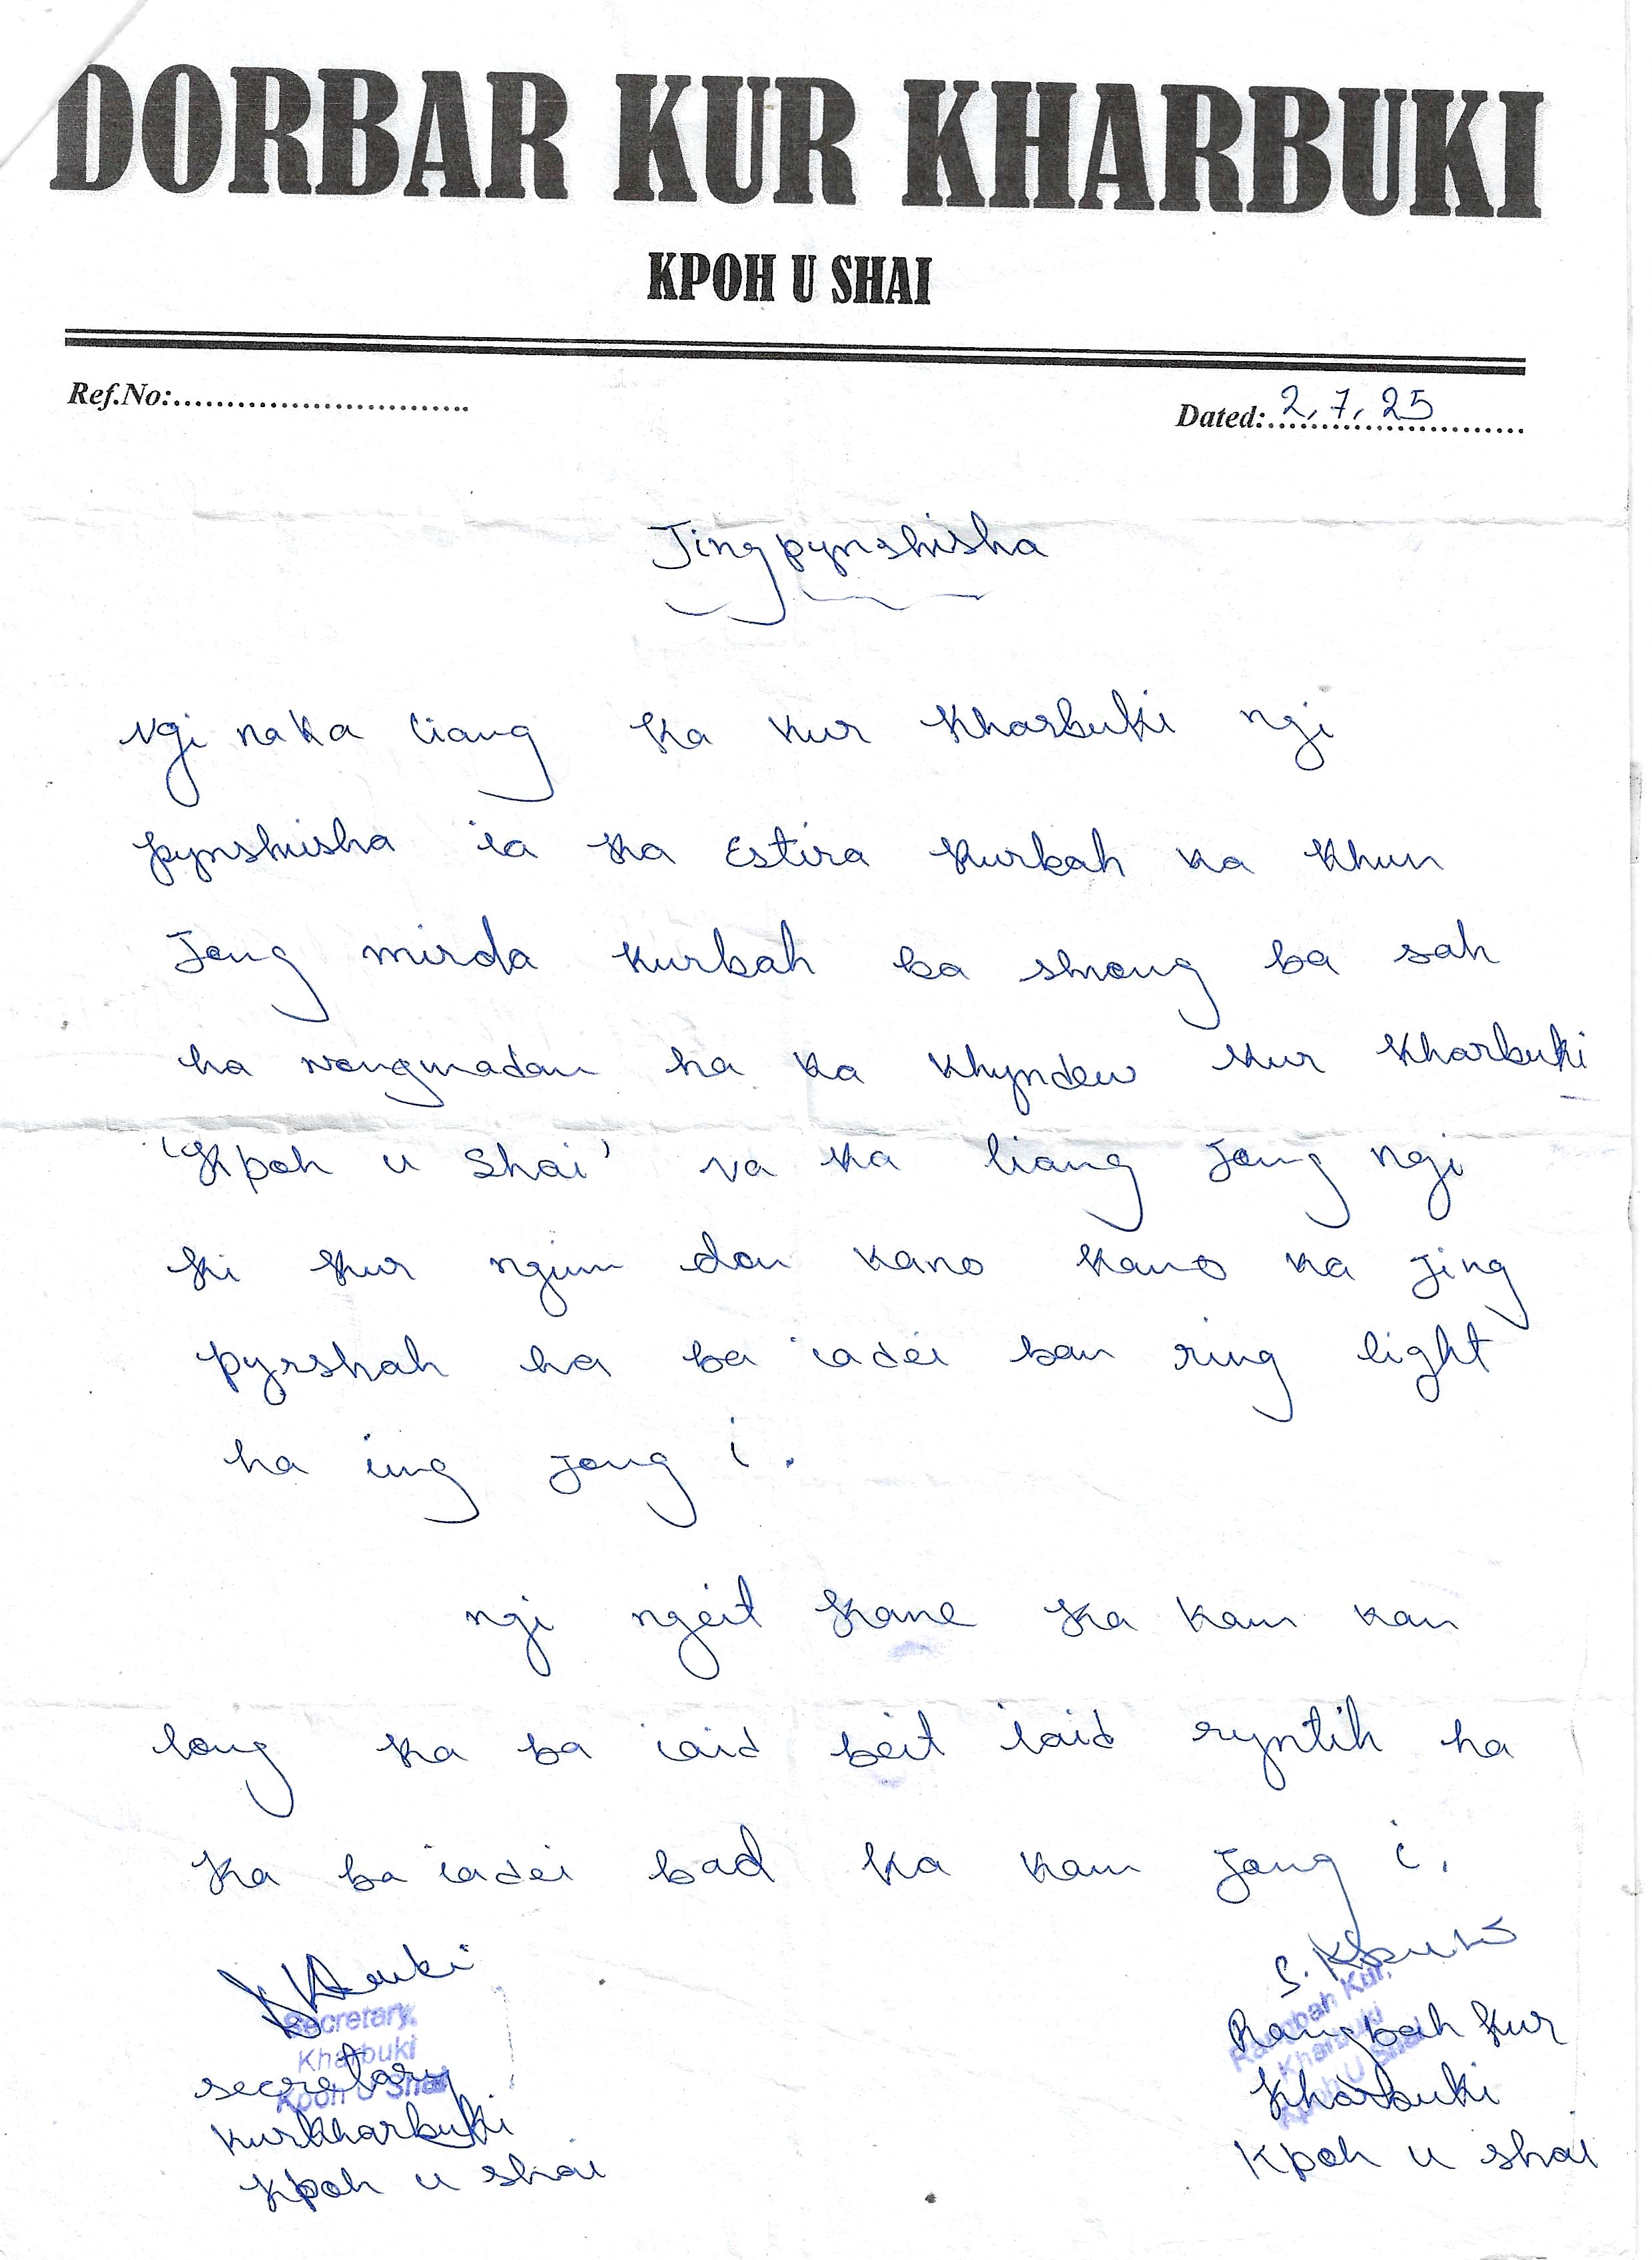 DORBAR KUR KHARBUKI
KPOH U SHAI
Ref.No:.............................
Dated: 2.7.25
Jingpynshisha
Ngi naka liang ka kur Kharbuki ngi
pynshisha ia ka Estira Kurbah ka khun
Jong mirda Kurbah ba shong ba sah
ha nongmadan ha ka khyndew kur Kharbuki
'Kpoh u Shai' na ka liang jong ngi
ki kur ngim don kano kano ka jing
pyrshah ha ba iadei ban ring light
ha iing jong i.
ngi ngeit kane ka kam kan
long ka ba iaid beit iaid ryntih ha
ka ba iadei bad ka kam jong i.
Secretary,
Kharbuki
Kpoh U Shai
secretary
kurkharbuki
Kpoh u shai
Rangbah Kur,
Kharbuki
Kpoh U Shai
Rangbah Kur
Kharbuki
Kpoh u shai